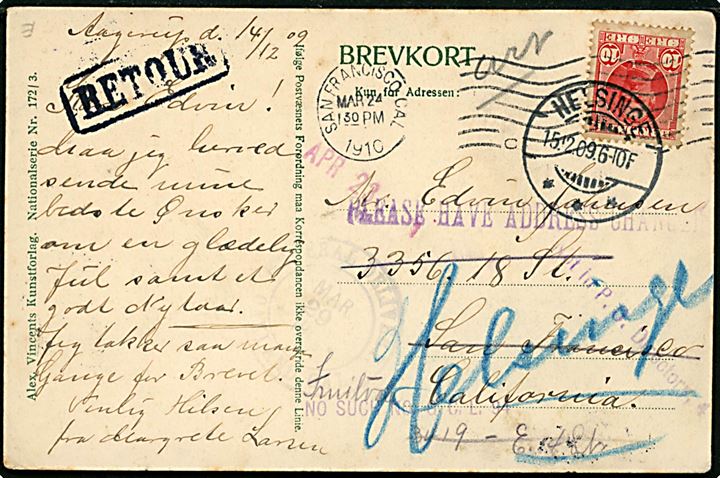 Aagerup d. 14/12 09
RETOUR
Edvin!
maa jeg herved
sende mine
bedste Ønsker
om en glædelig
Jul samt et
godt Nytaar.
Jeg takker saa mange
Gange for Brevet.
Venlig Hilsen
fra Margrete Larsen
Alex. Vincents Kunstforlag. Nationalserie Nr. 172/3.
Ifølge Postvæsnets Forordning maa Korrespondancen ikke overskride denne Linie.
BREVKORT
Kun for Adressen:
SAN FRANCISCO, CAL.
MAR 24
1 30 PM
1910
10
HELSINGE
15.12.09.6-10F
APR 2
Mr. Edvin Johnsen
PLEASE HAVE ADDRESS CHANGED
3356 18 St.
MAR
29
San Francisco
California.
Helsinge
P. O. Directory
Fruitvale
NO SUCH NO.